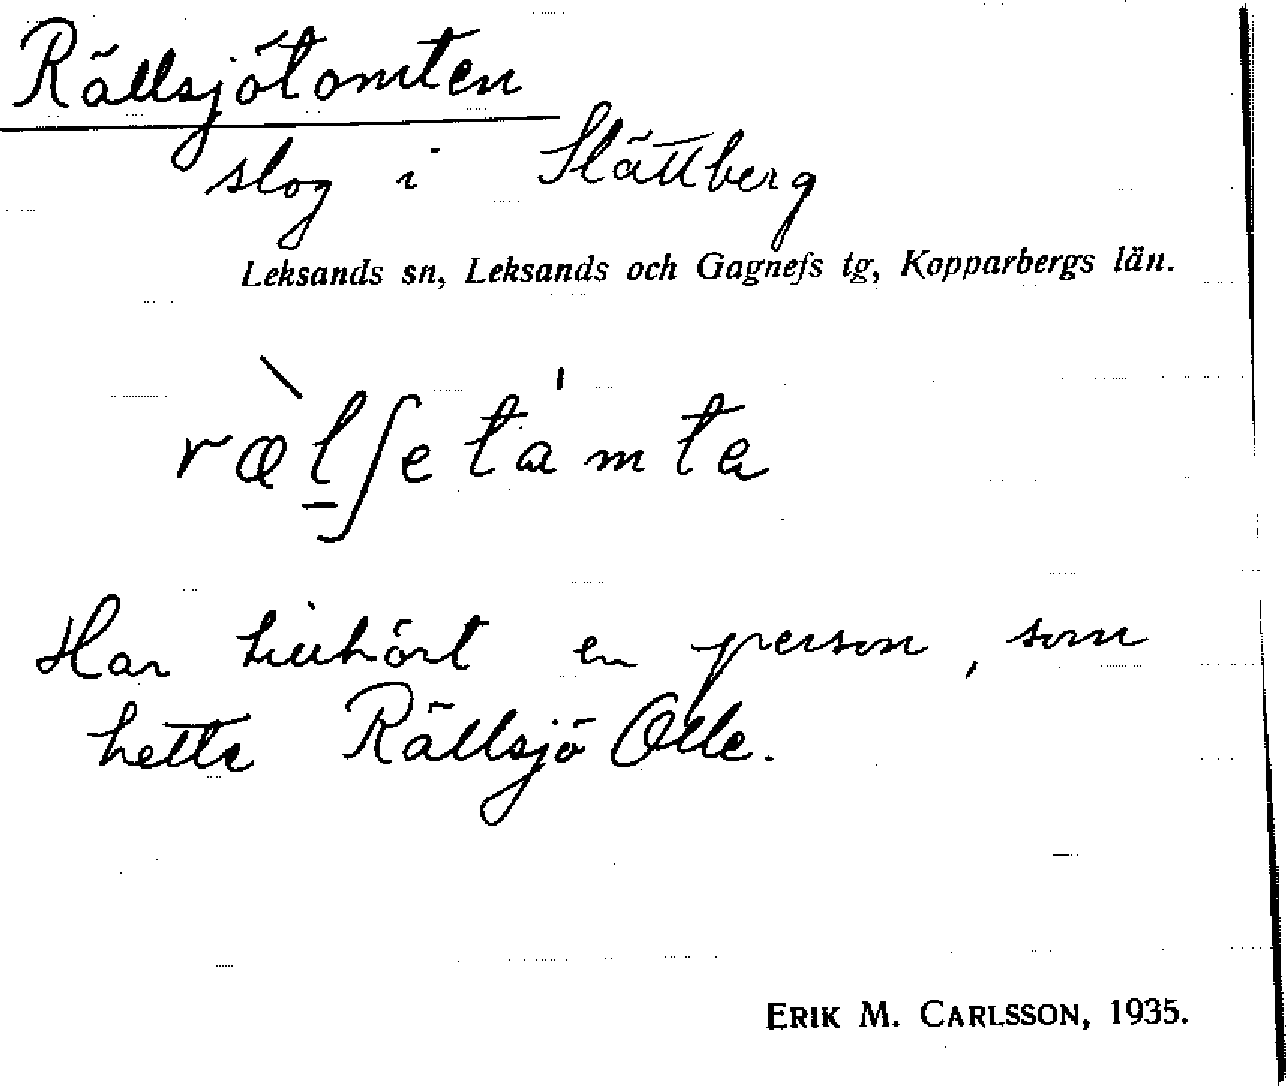 Rällsjötomten
slog i Slättberg
Leksands sn, Leksands och Gagnefs tg, Kopparbergs län.
ræ̀l̠ʃeta̍mta
Har tillhört en person, som
hette Rällsjö Olle.
ERIK M. CARLSSON, 1935.